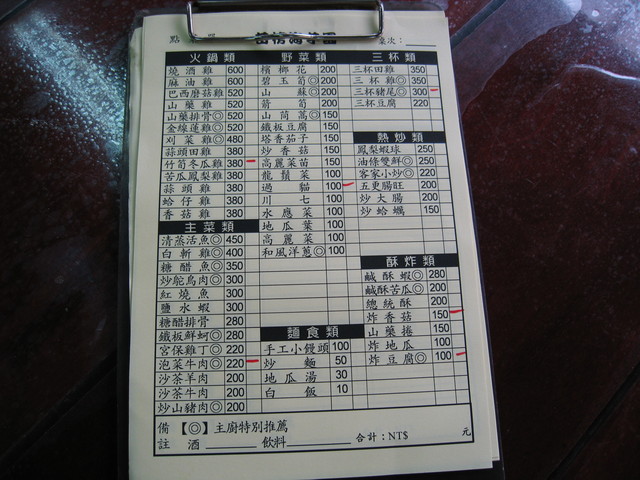 點
桌次：
火鍋類
燒酒雞 600
麻油雞 600
巴西蘑菇雞 520
山藥雞 520
山藥排骨◎ 520
金線蓮雞◎ 520
刈菜雞◎ 480
蒜頭田雞 380
竹筍冬瓜雞 380
苦瓜鳳梨雞 380
蒜頭雞 380
蛤仔雞 380
香菇雞 380
主菜類
清蒸活魚◎ 450
白斬雞◎ 400
糖醋魚◎ 350
炒鴕鳥肉◎ 300
紅燒魚 300
鹽水蝦 300
糖醋排骨 280
鐵板鮮蚵◎ 280
宮保雞丁◎ 220
泡菜牛肉◎ 220
沙茶羊肉 200
沙茶牛肉 200
炒山豬肉◎ 200
野菜類
檳榔花 200
碧玉筍◎ 200
山蘇◎ 200
箭筍 200
山茼蒿◎ 150
鐵板豆腐 150
塔香茄子 150
炒香菇 150
高麗菜苗 150
龍鬚菜 100
過貓 100
川七 100
水應菜 100
地瓜葉 100
高麗菜 100
和風洋蔥◎ 100
麵食類
手工小饅頭 100
炒麵 50
地瓜湯 30
白飯 10
三杯類
三杯田雞 350
三杯雞◎ 350
三杯豬尾◎ 300
三杯豆腐 220
熱炒類
鳳梨蝦球 250
油條雙鮮◎ 250
客家小炒◎ 220
五更腸旺 200
炒大腸 200
炒蛤蠣 150
酥炸類
鹹酥蝦◎ 280
鹹酥苦瓜◎ 200
總統酥 200
炸香菇 150
山藥捲 150
炸地瓜 100
炸豆腐◎ 100
備註【◎】主廚特別推薦
酒 飲料 合計：NT$ 元